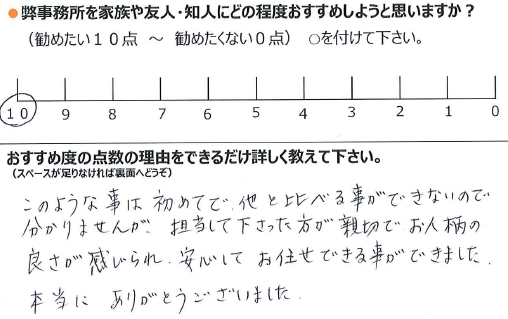 ●弊事務所を家族や友人・知人にどの程度おすすめしようと思いますか？
（勧めたい１０点　～　勧めたくない０点）　○を付けて下さい。
10 9 8 7 6 5 4 3 2 1 0
おすすめ度の点数の理由をできるだけ詳しく教えて下さい。
（スペースが足りなければ裏面へどうぞ）
このような事は初めてで、他と比べる事ができないので
分かりませんが、担当して下さった方が親切でお人柄の
良さが感じられ、安心してお任せできる事ができました。
本当に ありがとうございました。